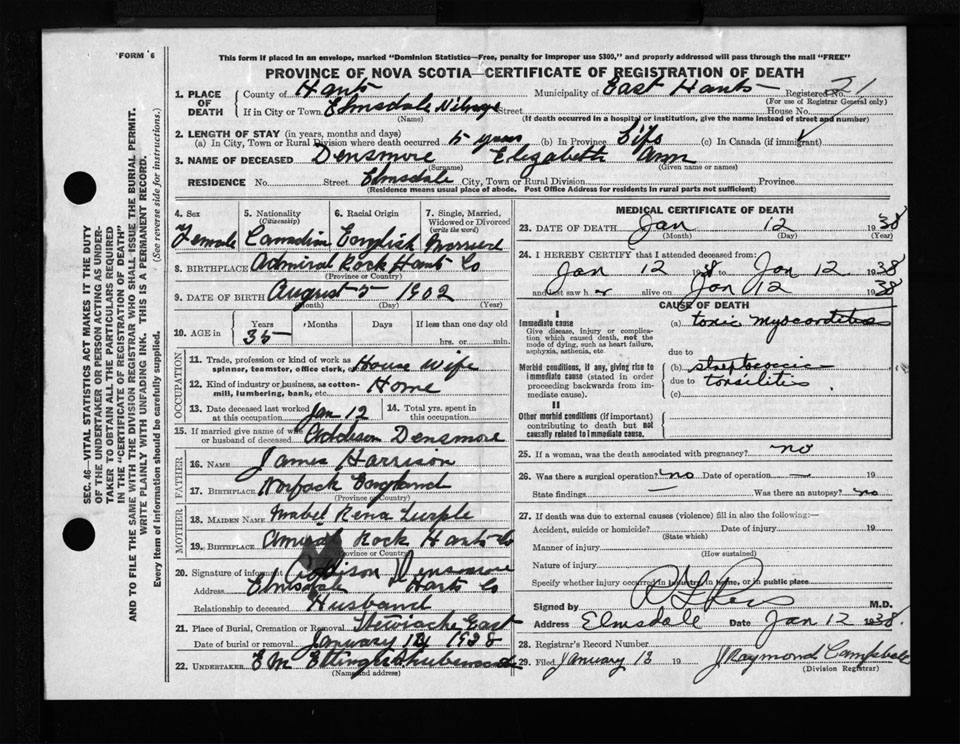 FORM 6
This form if placed in an envelope, marked "Dominion Statistics—Free, penalty for improper use $300," and properly addressed will pass through the mail "FREE"
PROVINCE OF NOVA SCOTIA—CERTIFICATE OF REGISTRATION OF DEATH
1. PLACE OF DEATH County of Hants Municipality of East Hants Registered No. 21
(For use of Registrar General only)
If in City or Town Elmsdale Village Street House No.
(Name) (If death occurred in a hospital or institution, give the name instead of street and number)
2. LENGTH OF STAY (in years, months and days)
(a) In City, Town or Rural Division where death occurred 5 years (b) In Province Life (c) In Canada (if immigrant)
3. NAME OF DECEASED Densmore Elizabeth Ann
(Surname) (Given name or names)
RESIDENCE No. Street Elmsdale City, Town or Rural Division Province
(Residence means usual place of abode. Post Office Address for residents in rural parts not sufficient)
4. Sex Female
5. Nationality (Citizenship) Canadian
6. Racial Origin English
7. Single, Married, Widowed or Divorced (write the word) Married
8. BIRTHPLACE Admiral Rock Hants Co
(Province or Country)
9. DATE OF BIRTH August 5 1902
(Month) (Day) (Year)
10. AGE in Years 35 Months Days If less than one day old hrs. or min.
OCCUPATION
11. Trade, profession or kind of work as spinner, teamster, office clerk, House Wife
12. Kind of industry or business, as cotton-mill, lumbering, bank, etc. Home
13. Date deceased last worked at this occupation Jan 12
14. Total yrs. spent in this occupation
15. If married give name of wife or husband of deceased Addison Densmore
FATHER
16. NAME James Harrison
17. BIRTHPLACE England
(Province or Country)
MOTHER
18. MAIDEN NAME Mabel Rena
19. BIRTHPLACE Rock Hants Co
(Province or Country)
20. Signature of informant Addison Densmore
Address Elmsdale Hants Co
Relationship to deceased Husband
21. Place of Burial, Cremation or Removal Stewiacke East
Date of burial or removal January 1938
22. UNDERTAKER E M Ettinger Shubenacadie
(Name and address)
MEDICAL CERTIFICATE OF DEATH
23. DATE OF DEATH Jan 12 1938
(Month) (Day) (Year)
24. I HEREBY CERTIFY that I attended deceased from:
Jan 12 1938 to Jan 12 1938
and last saw her alive on Jan 12 1938
CAUSE OF DEATH
I
Immediate cause (a) toxic myocarditis
Give disease, injury or complication which caused death, not the mode of dying, such as heart failure, asphyxia, asthenia, etc.
due to
Morbid conditions, if any, giving rise to immediate cause (stated in order proceeding backwards from immediate cause).
(b) streptococcic
due to tonsilitis
(c)
II
Other morbid conditions (if important) contributing to death but not causally related to immediate cause.
25. If a woman, was the death associated with pregnancy? no
26. Was there a surgical operation? no Date of operation — 19
State findings — Was there an autopsy? no
27. If death was due to external causes (violence) fill in also the following:—
Accident, suicide or homicide? Date of injury 19
(State which)
Manner of injury
(How sustained)
Nature of injury
Specify whether injury occurred in industry, in home, or in public place
Signed by M.D.
Address Elmsdale Date Jan 12 1938
28. Registrar's Record Number
29. Filed January 13 19 J Raymond Campbell
(Division Registrar)
SEC. 46—VITAL STATISTICS ACT MAKES IT THE DUTY
OF THE UNDERTAKER OR PERSON ACTING AS UNDER-
TAKER TO OBTAIN ALL THE PARTICULARS REQUIRED
IN THE "CERTIFICATE OF REGISTRATION OF DEATH"
AND TO FILE THE SAME WITH THE DIVISION REGISTRAR WHO SHALL ISSUE THE BURIAL PERMIT.
WRITE PLAINLY WITH UNFADING INK. THIS IS A PERMANENT RECORD.
Every item of information should be carefully supplied. (See reverse side for instructions.)